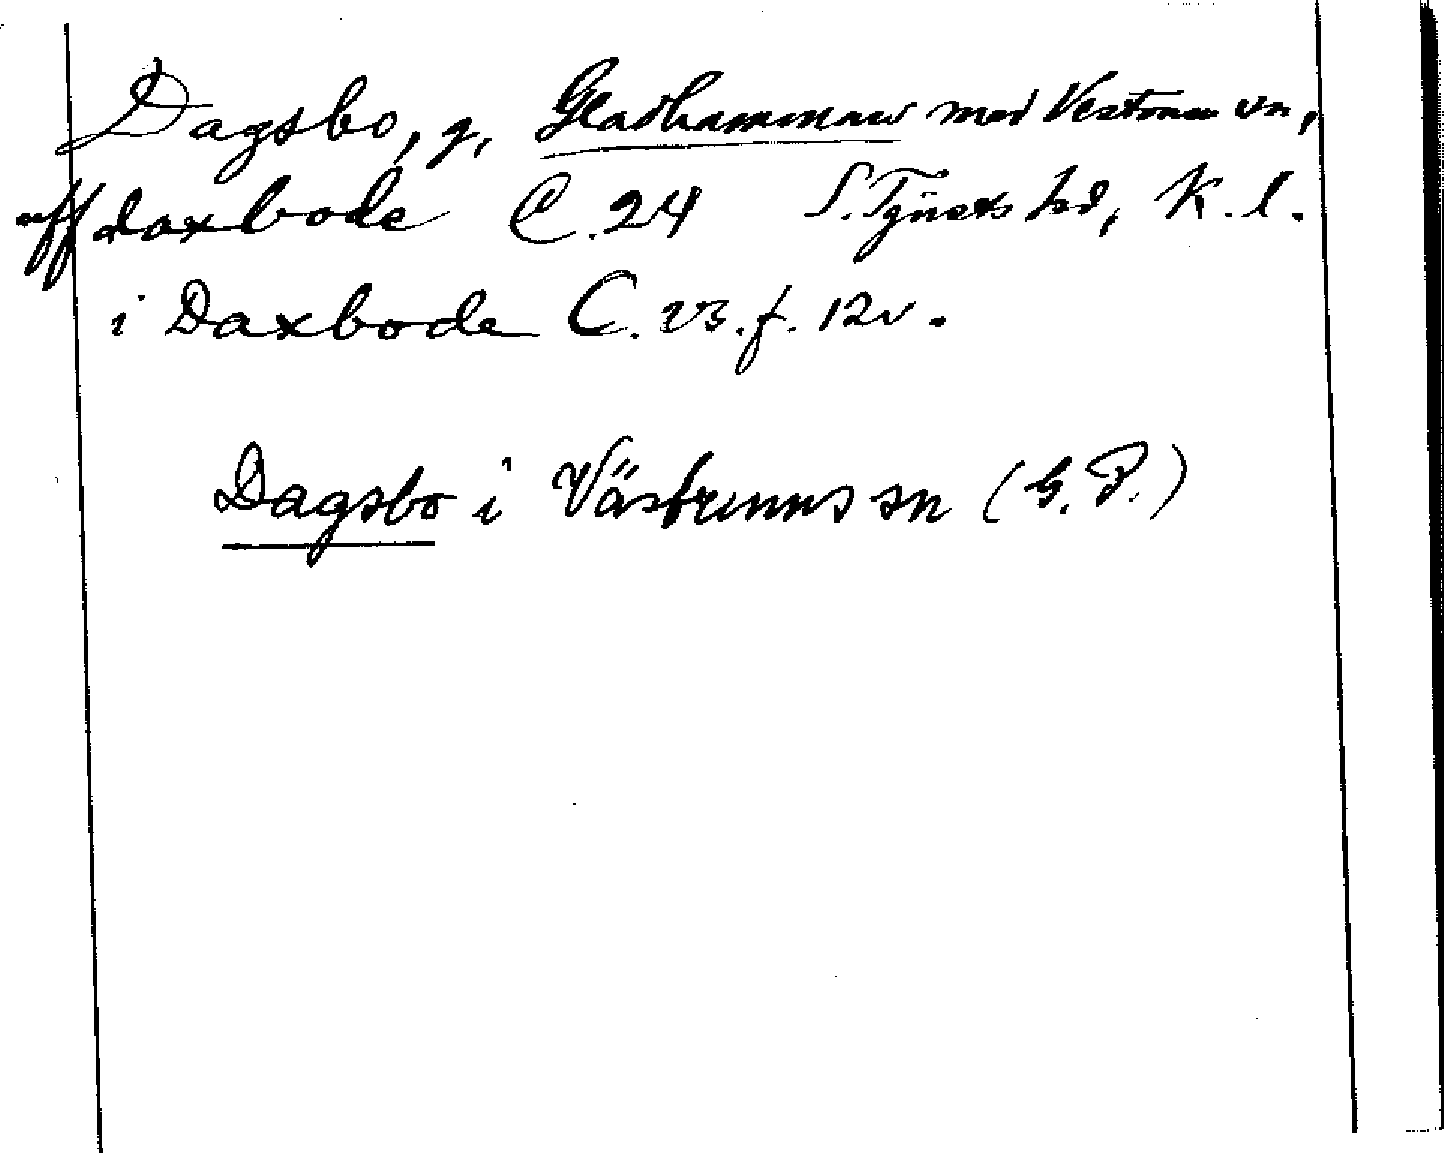 Dagsbo, g, Gladhammar med Vestrum sn,
uff daxbode C. 24 S. Tjusts hd, K. l.
i Daxbode C. 23. f. 12v.
Dagsbo i Västrums sn (G. P.)